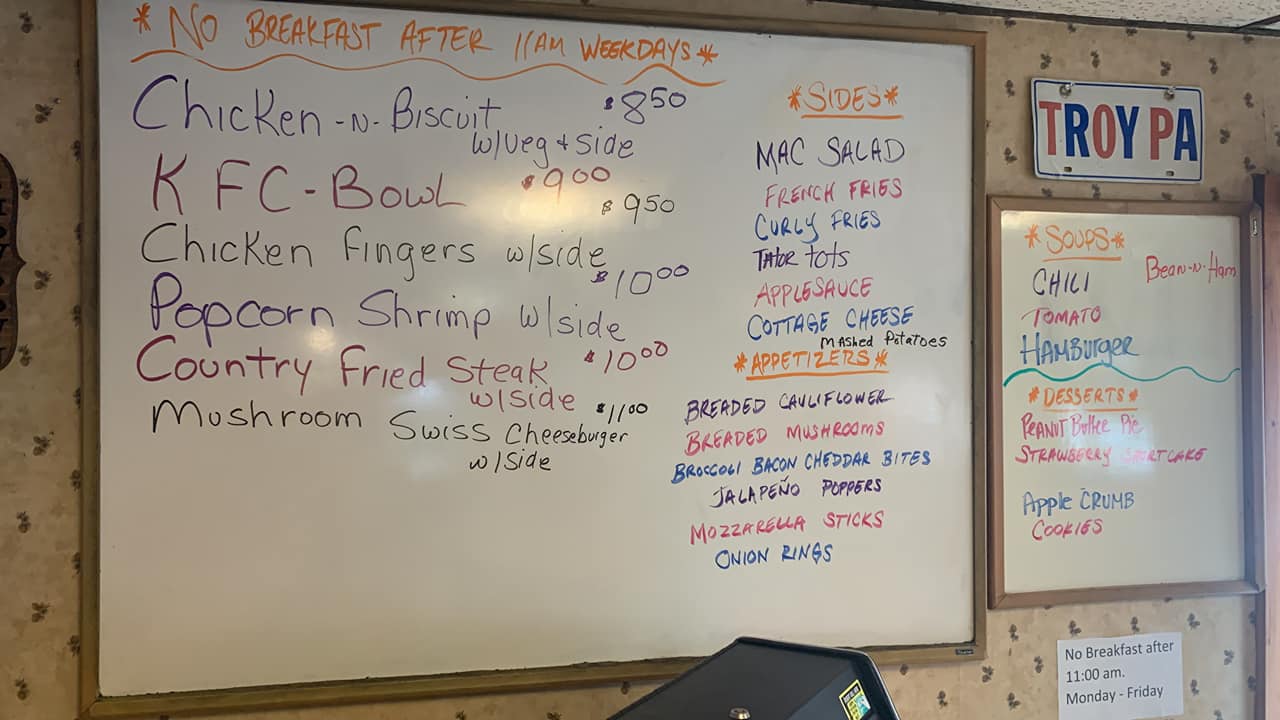 *NO BREAKFAST AFTER 11AM WEEKDAYS*
Chicken-N-Biscuit $8 50
w/veg + side
KFC-Bowl $9 00
Chicken Fingers w/side $9 50
Popcorn Shrimp w/side $10 00
Country Fried Steak $10 00
w/side
Mushroom Swiss Cheeseburger $11 00
w/side
*SIDES*
MAC SALAD
FRENCH FRIES
CURLY FRIES
TATOR tots
APPLESAUCE
COTTAGE CHEESE
MAShed Potatoes
*APPETIZERS*
BREADED CAULIFLOWER
BREADED MUSHROOMS
BROCCOLI BACON CHEDDAR BITES
JALAPEÑO POPPERS
MOZZARELLA STICKS
ONION RINGS
TROY PA
*SOUPS*
CHILI
Bean-N-Ham
TOMATO
HAMBURGER
*DESSERTS*
PEANUT Butter Pie
STRAWBERRY SHORTCAKE
Apple CRUMB
COOKIES
No Breakfast after
11:00 am.
Monday - Friday